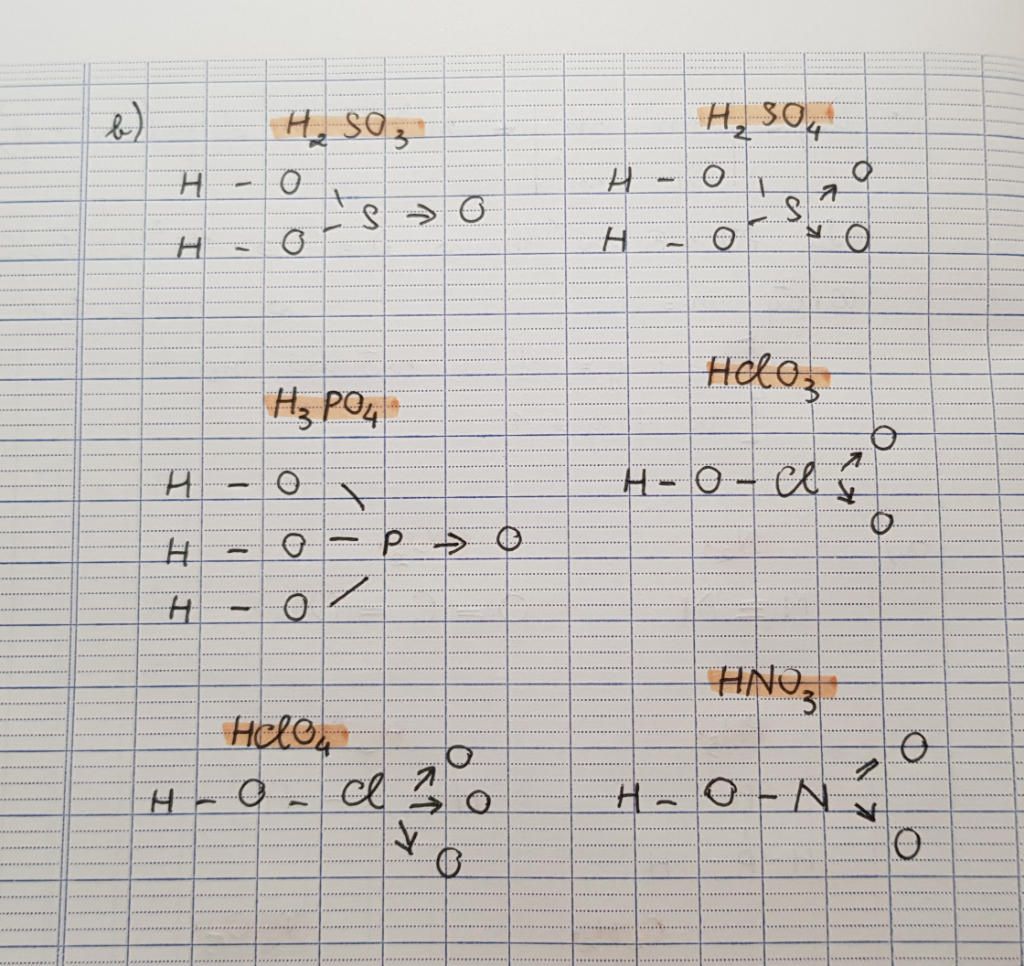 b)
H₂SO₃
H - O \
S → O
H - O -
H₂SO₄
H - O \ ↗ O
S
H - O - ↘ O
H₃PO₄
H - O \
H - O - P → O
H - O /
HClO₃
↗ O
H - O - Cl
↘ O
HClO₄
↗ O
H - O - Cl → O
↘ O
HNO₃
⫽ O
H - O - N
↘ O